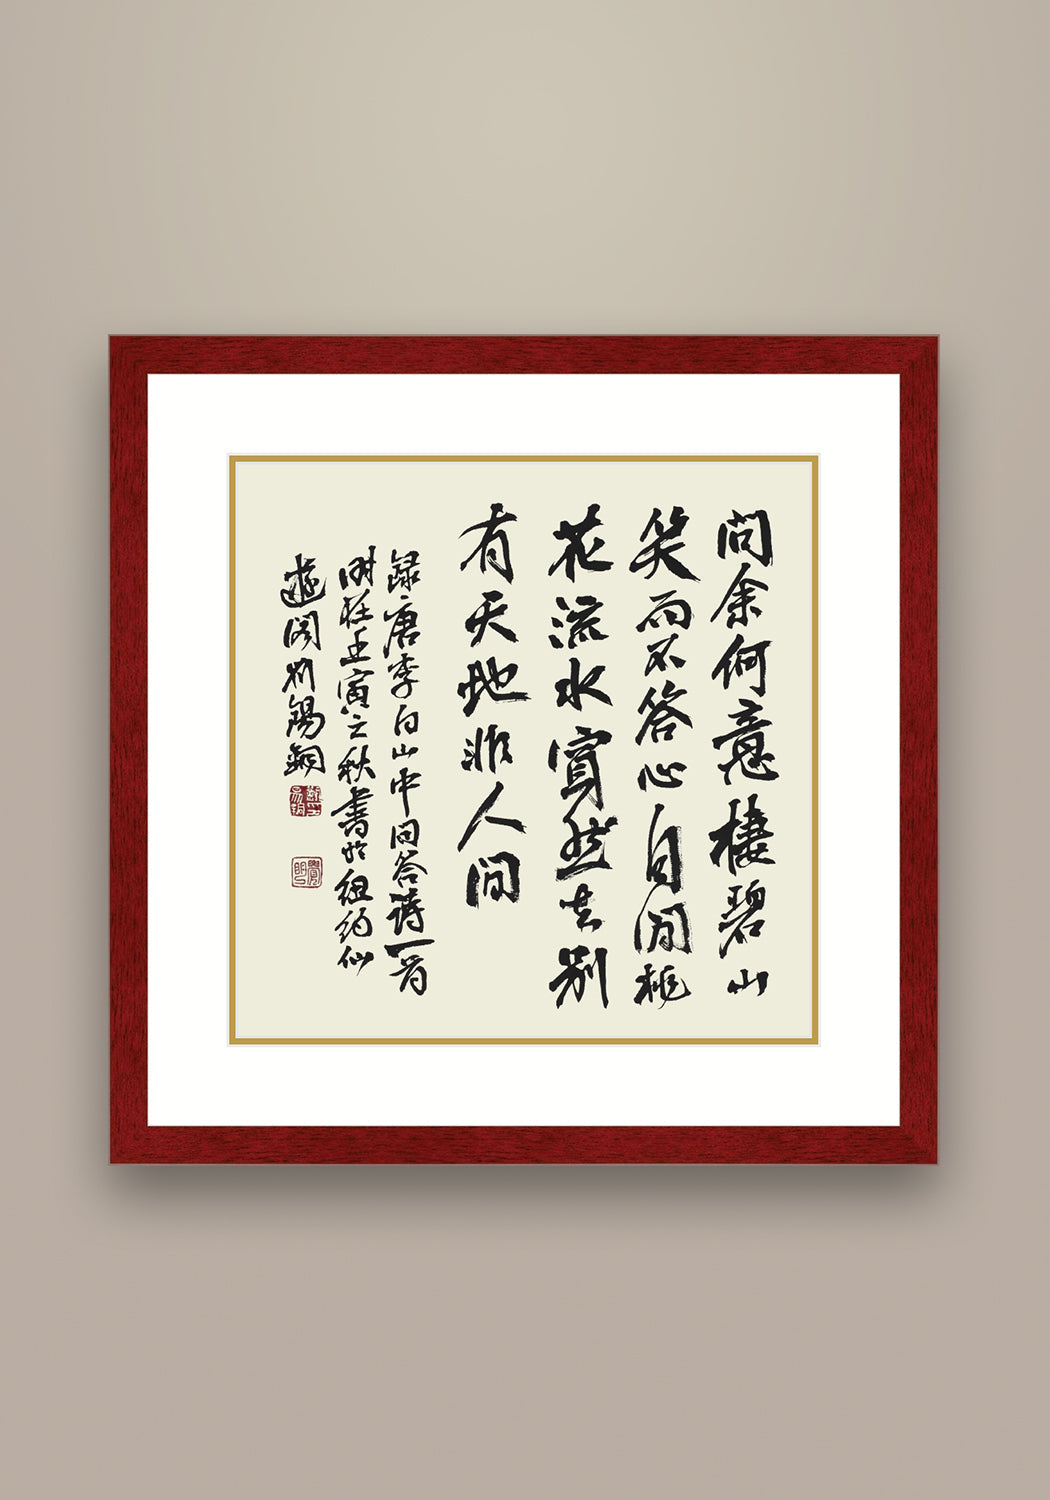 問余何意棲碧山
笑而不答心自閒桃
花流水窅然去别
有天地非人間
録唐李白山中問答詩一首
時在壬寅之秋書於紐約仙
遊閣劉錫銅